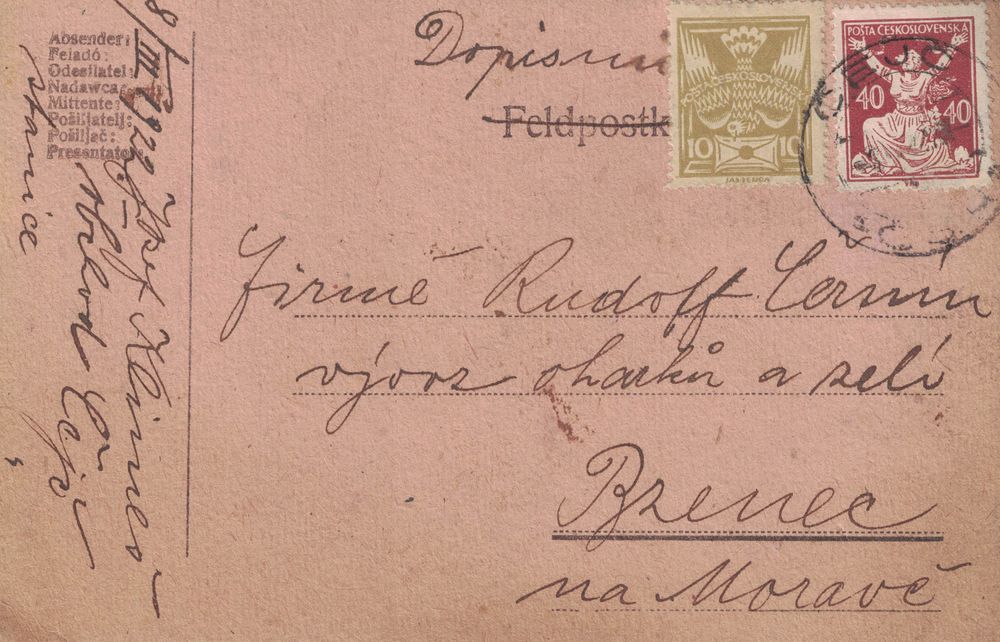 Absender:
Feladó:
Odesilatel:
Nadawca:
Mittente:
Pošiljatelj:
Pošiljač:
Presentator:
8/III
Josef Klimeš
obchod
stanice
Dopisni
Feldpostk
POŠTA ČESKOSLOVENSKÁ
10 10
POŠTA ČESKOSLOVENSKÁ
40 40
Firmě Rudolf Černín
vývoz okurků a zelí
Bzenec
na Moravě